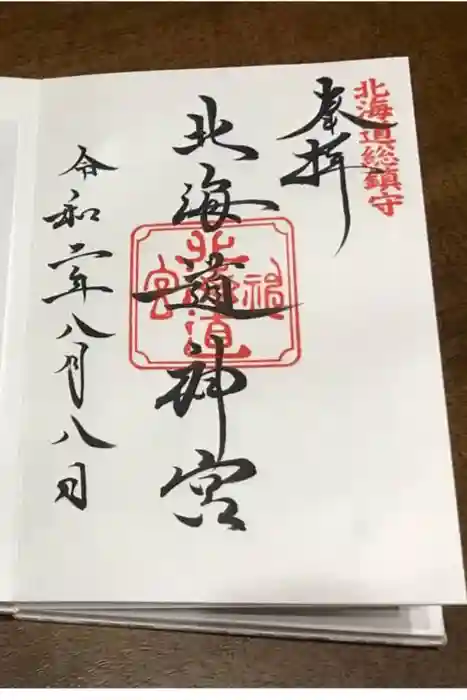 北海道総鎮守
奉拝
北海道神宮
北海道神宮
令和二年八月八日